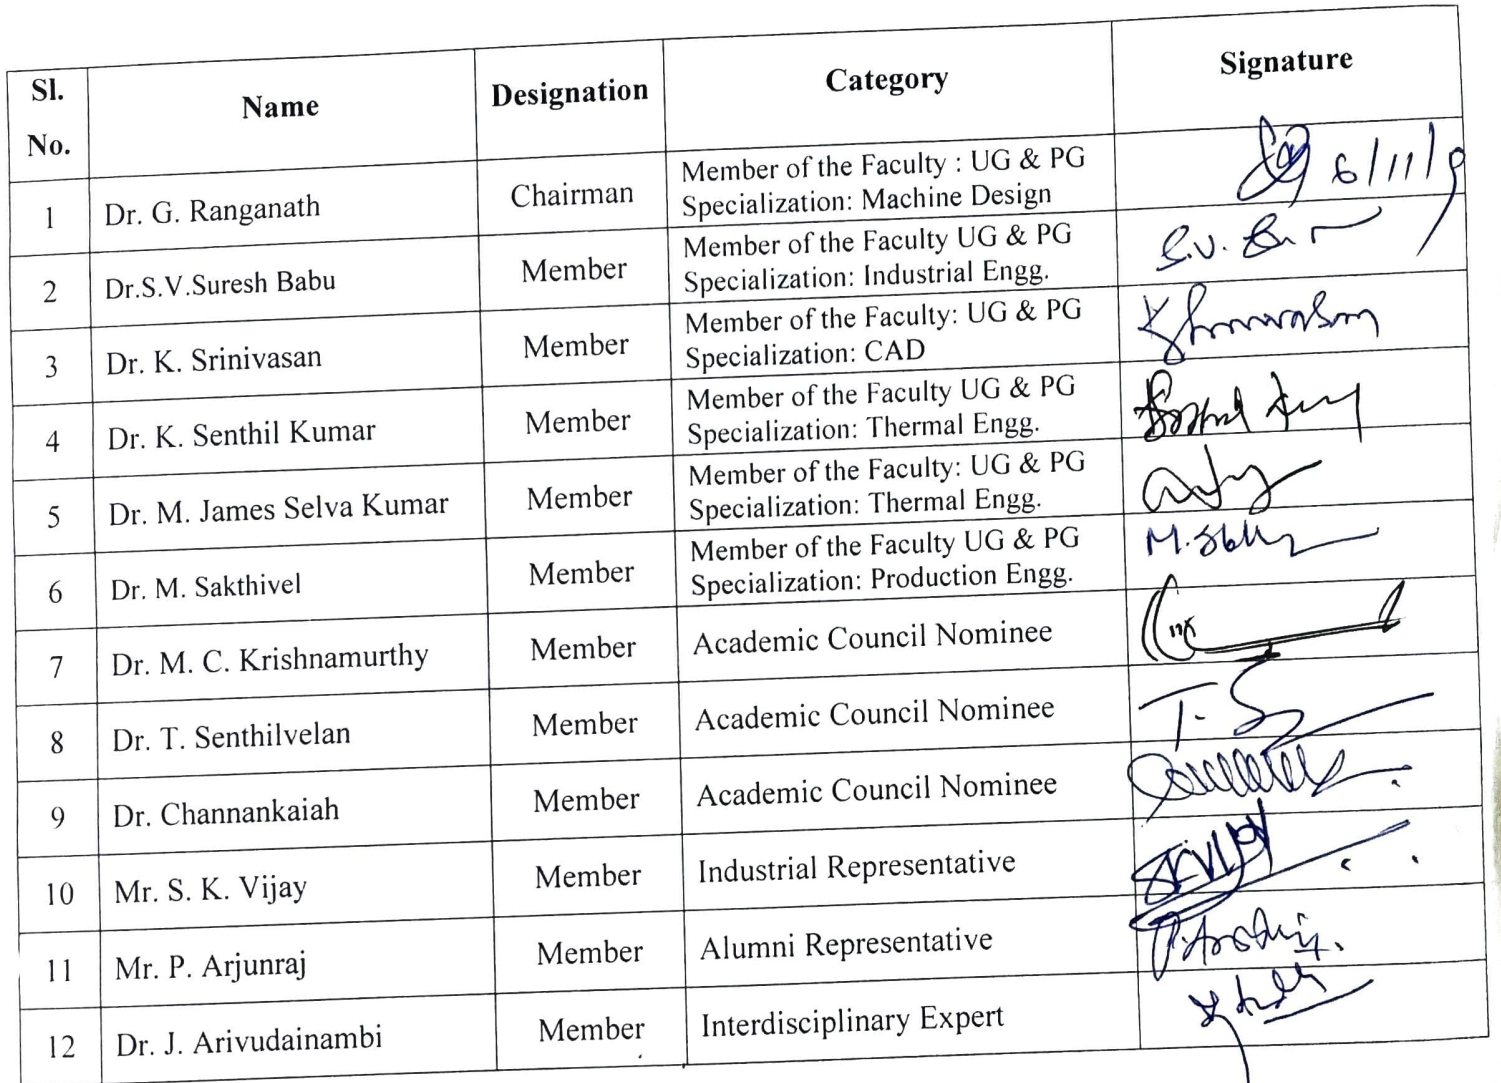 Sl. No. Name Designation Category Signature
1 Dr. G. Ranganath Chairman Member of the Faculty : UG & PG
Specialization: Machine Design 6/11/9
2 Dr.S.V.Suresh Babu Member Member of the Faculty UG & PG
Specialization: Industrial Engg. S.V.
3 Dr. K. Srinivasan Member Member of the Faculty: UG & PG
Specialization: CAD
4 Dr. K. Senthil Kumar Member Member of the Faculty UG & PG
Specialization: Thermal Engg.
5 Dr. M. James Selva Kumar Member Member of the Faculty: UG & PG
Specialization: Thermal Engg.
6 Dr. M. Sakthivel Member Member of the Faculty UG & PG
Specialization: Production Engg.
7 Dr. M. C. Krishnamurthy Member Academic Council Nominee
8 Dr. T. Senthilvelan Member Academic Council Nominee
9 Dr. Channankaiah Member Academic Council Nominee
10 Mr. S. K. Vijay Member Industrial Representative
11 Mr. P. Arjunraj Member Alumni Representative
12 Dr. J. Arivudainambi Member Interdisciplinary Expert